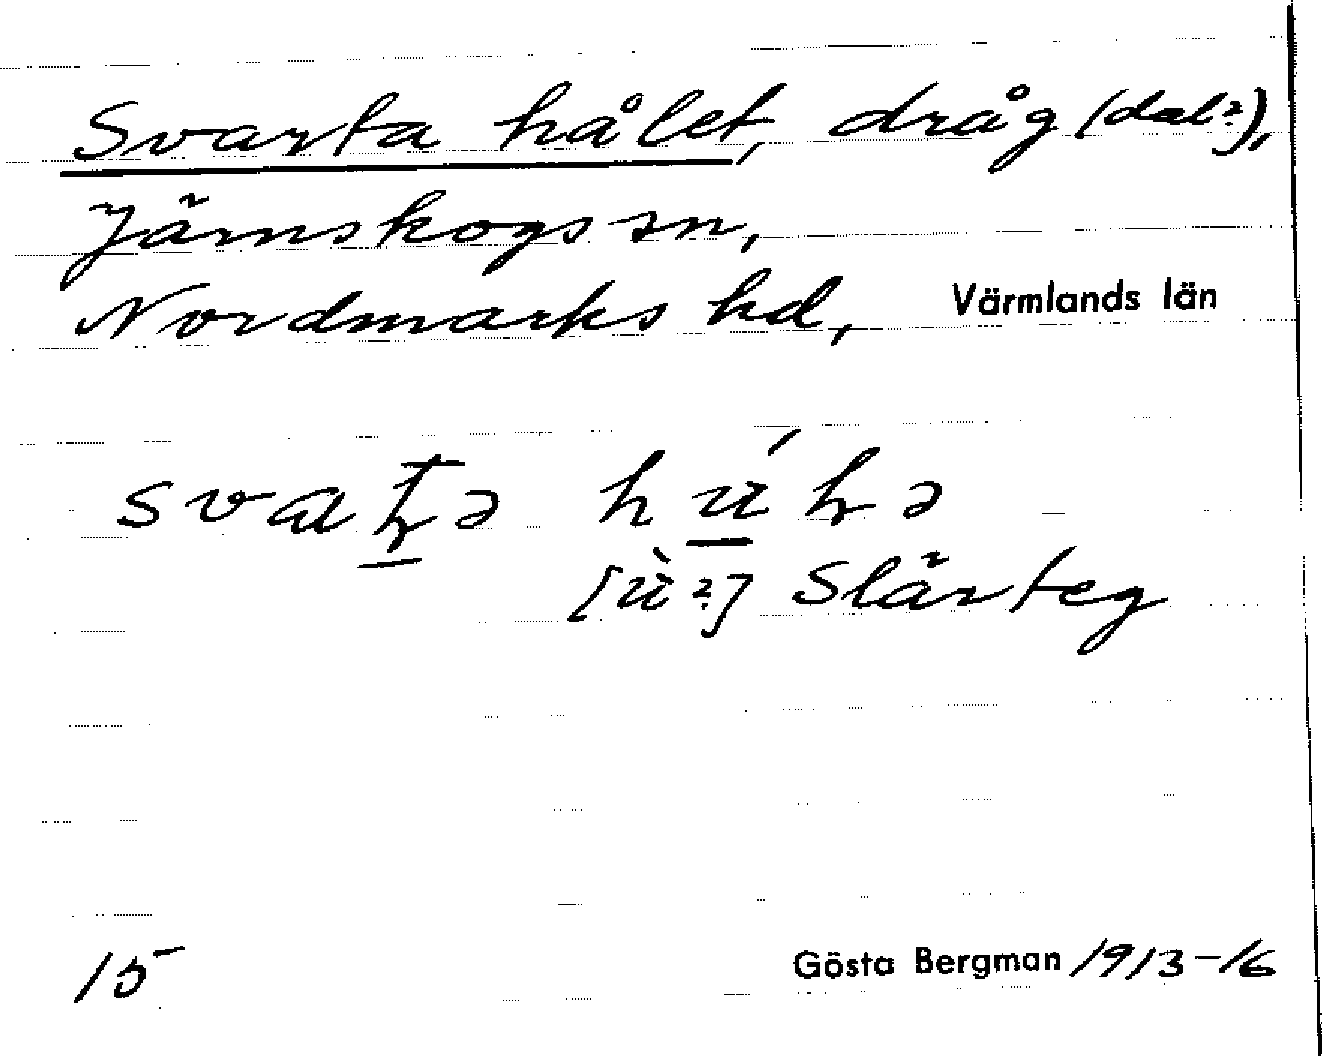 Svarta hålet, dråg (dal?),
Järnskogs sn,
Nordmarks hd, Värmlands län
[ù?] Slärteg
15 Gösta Bergman 1913-16